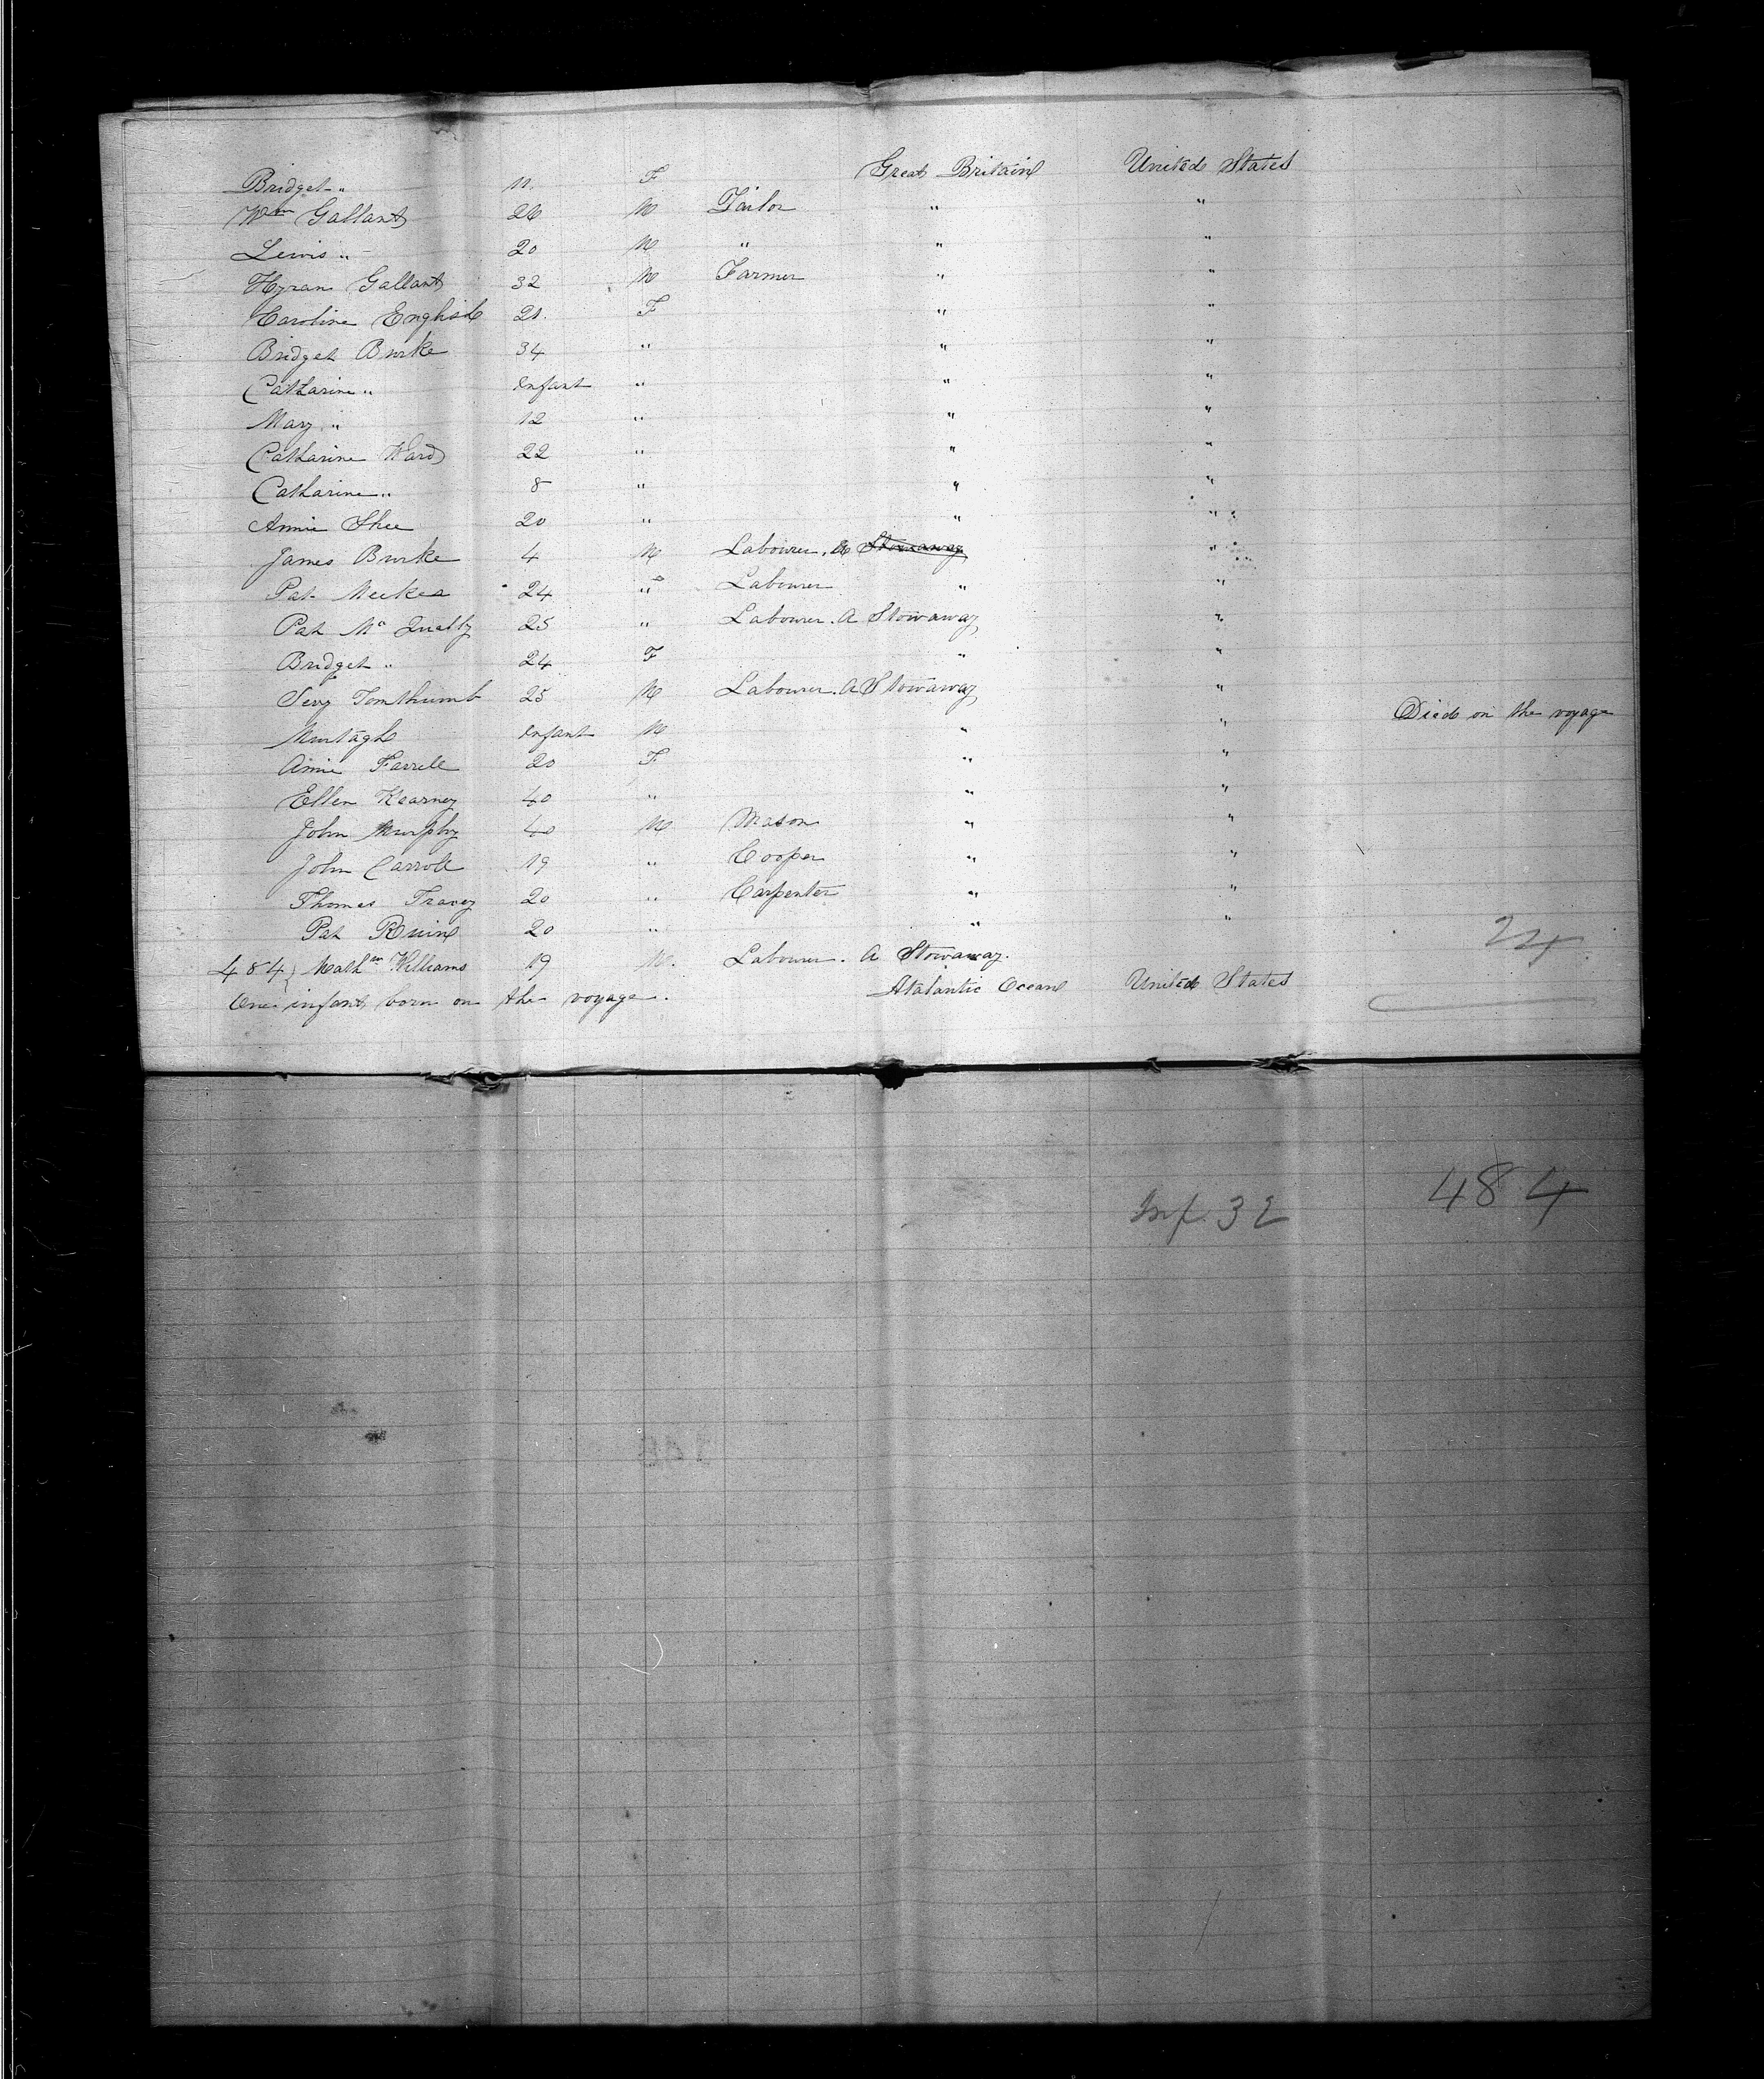 Bridget " 11. F Great Britain United States
Wm Gallant 26 M Tailor " "
Lewis " 20 M " " "
Hyram Gallant 32 M Farmer " "
Caroline English 21. F " "
Bridget Burke 34 " " "
Catharine " Infant " " "
Mary " 12 " " "
Catharine Ward 22 " " "
Catharine " 8 " " "
Annie Shee 20 " " "
James Burke 4 M Labourer. A Stowaway "
Pat Meekea 24 " Labourer " "
Pat Mc Qually 25 " Labourer. A Stowaway "
Bridget " 24 F " "
Tomthumb 25 M Labourer. A Stowaway "
Murtagh Infant M " " Died on the voyage
Annie Farrell 20 F " "
Ellen Kearney 40 " " "
John Murphy 40 M Mason " "
John Carroll 19 " Cooper " "
Thomas Tracey 20 " Carpenter " "
Pat 20 " " " 24
484 Williams 19 M. Labourer. A Stowaway.
One infant born on the voyage. Atalantic Ocean United States
Inf. 32 484